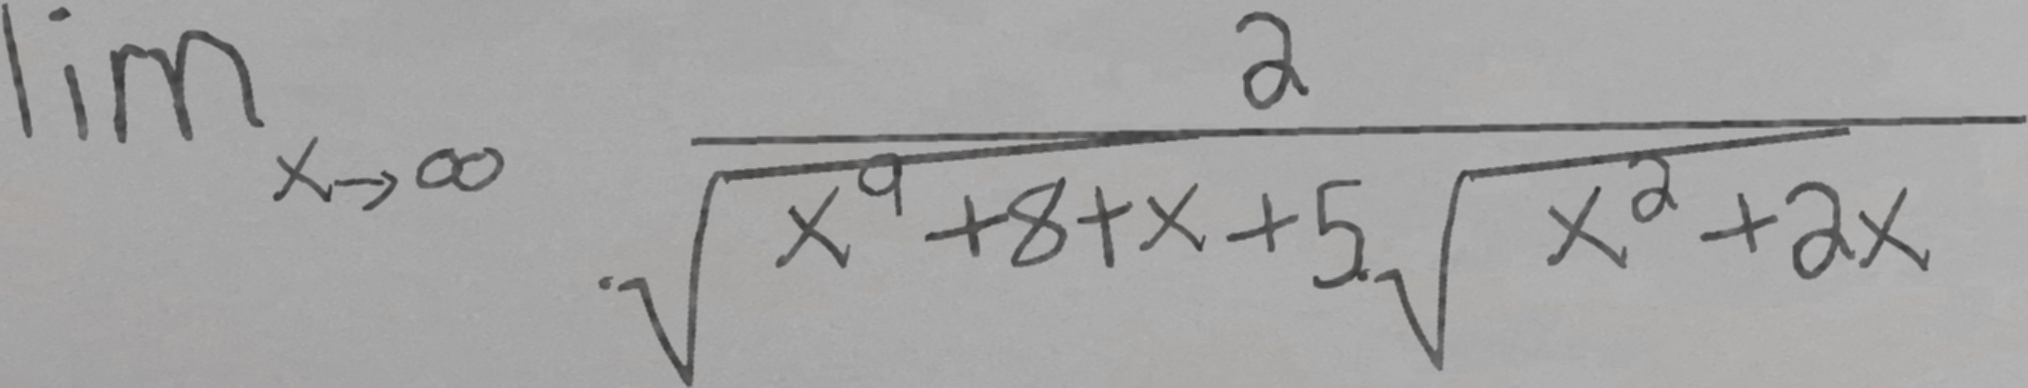 \lim_{x \to \infty} \frac{2}{\sqrt{x^9+8+x}+5\sqrt{x^2+2x}}